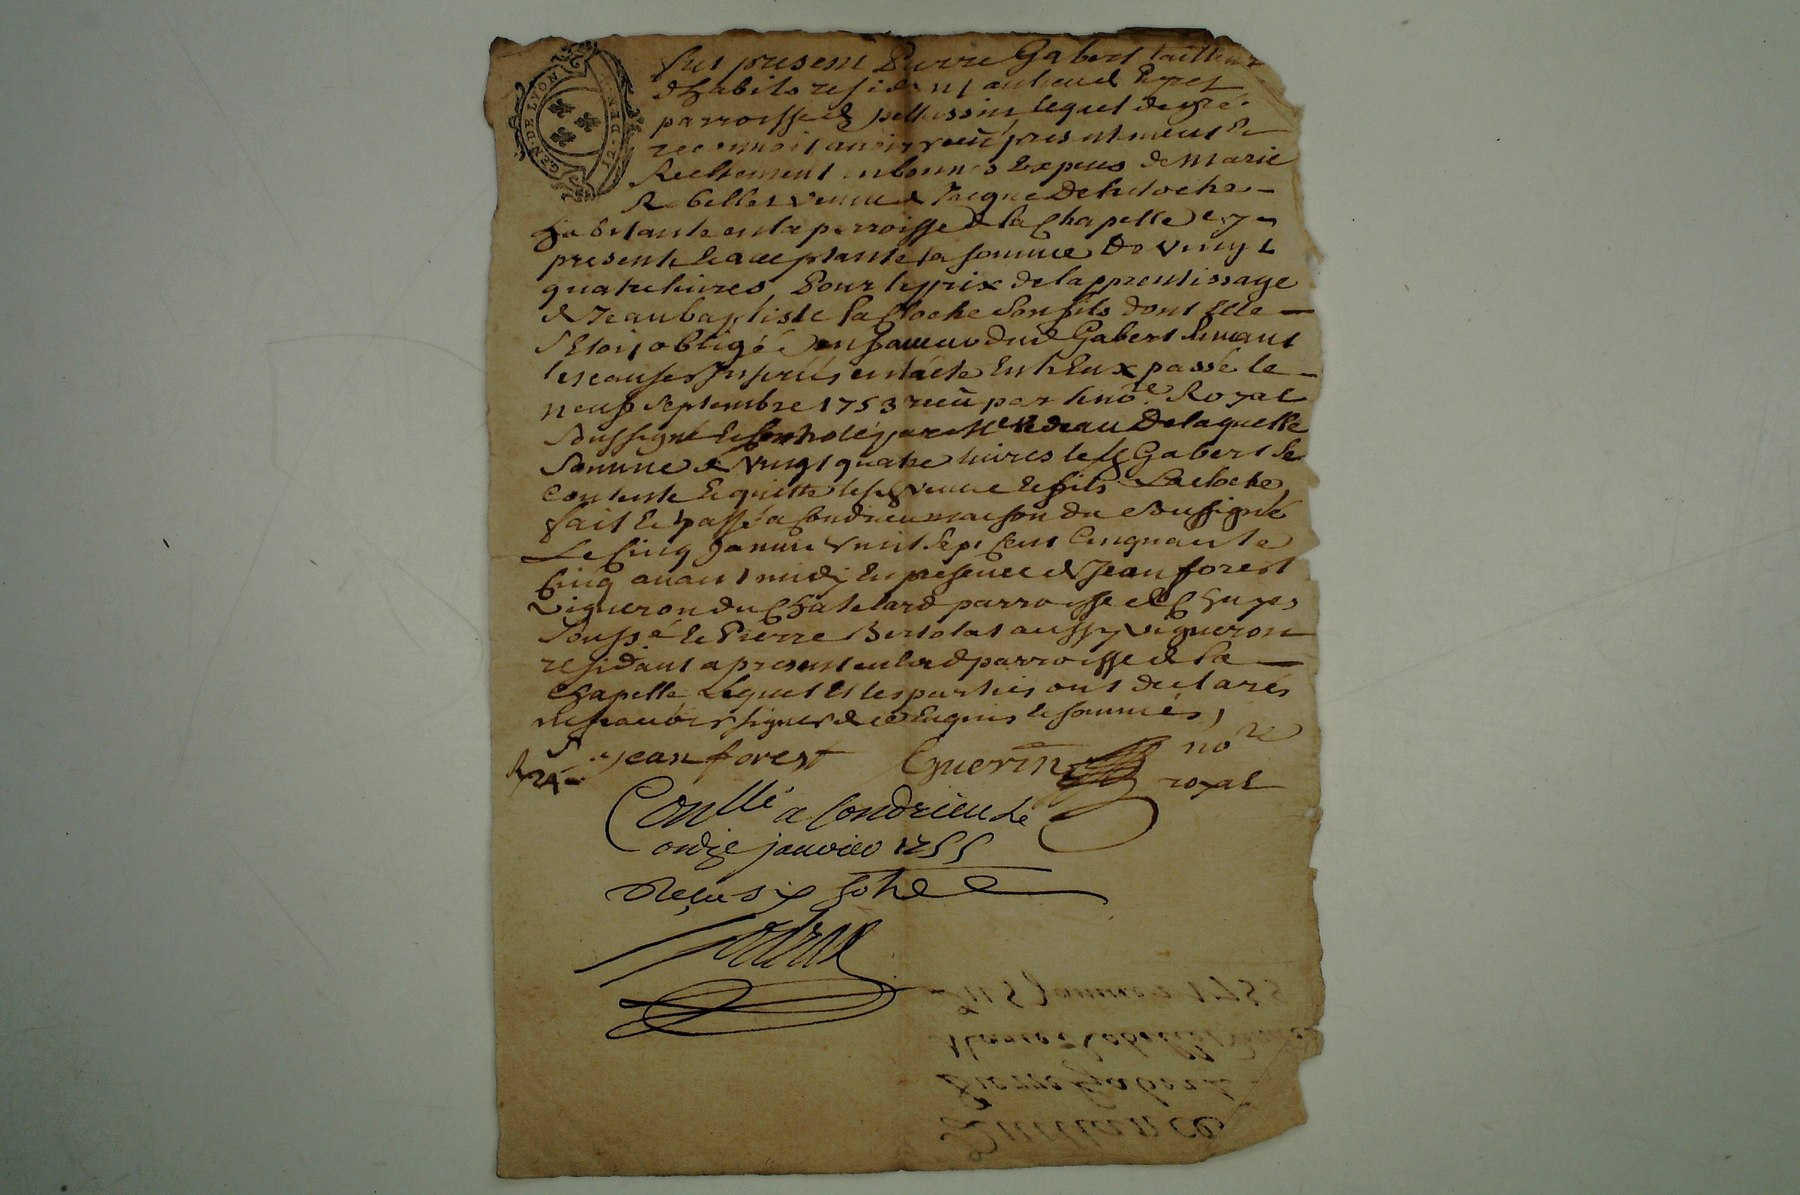 GEN. DE LYON
fut present Pierre Gabert tailleur
d'habits resident au lieu de
parroisse de pellussin lequel de gré
reconnoit avoir receu presentement et
Reellement en bonnes Especes de Marie
Robellet veuve de Jacque Delacloche
habitante en la parroisse de la Chapelle icy
presente et acceptante la somme De vingt
quatre livres Pour le prix de lapprentissage
de Jean baptiste la Cloche son fils dont Elle
s'Etoit obligé En faveur dud Gabert suivant
les causes Inserés en l'acte Entr'Eux passé le
neuf septembre 1753 receu par le no.re Royal
soussigné et controlé par Me De laquelle
somme de vingt quatre livres led Gabert se
contente Et quitte lad veuve et fils Lacloche,
fait et passé a Condrieu maison du soussigné
Le Cinq Janvier mil sept Cent Cinquante
Cinq avant midy En presence de Jean forest
vigneron du Chatelard parroisse de Chuyes
soussé. et Pierre Bertolat aussy vigneron
residant a present en lad parroisse de La
Chapelle Lequel Et les parties ont declarés
ne scavoir signer de ce Enquis et sommés,
jean forest Guerin no.re
royal
Conllé a Condrieu le
onze janvier 1755
Receu six sols
Du 5 Janvier 1755
Marie Robellet
Pierre Gabert
Quittance